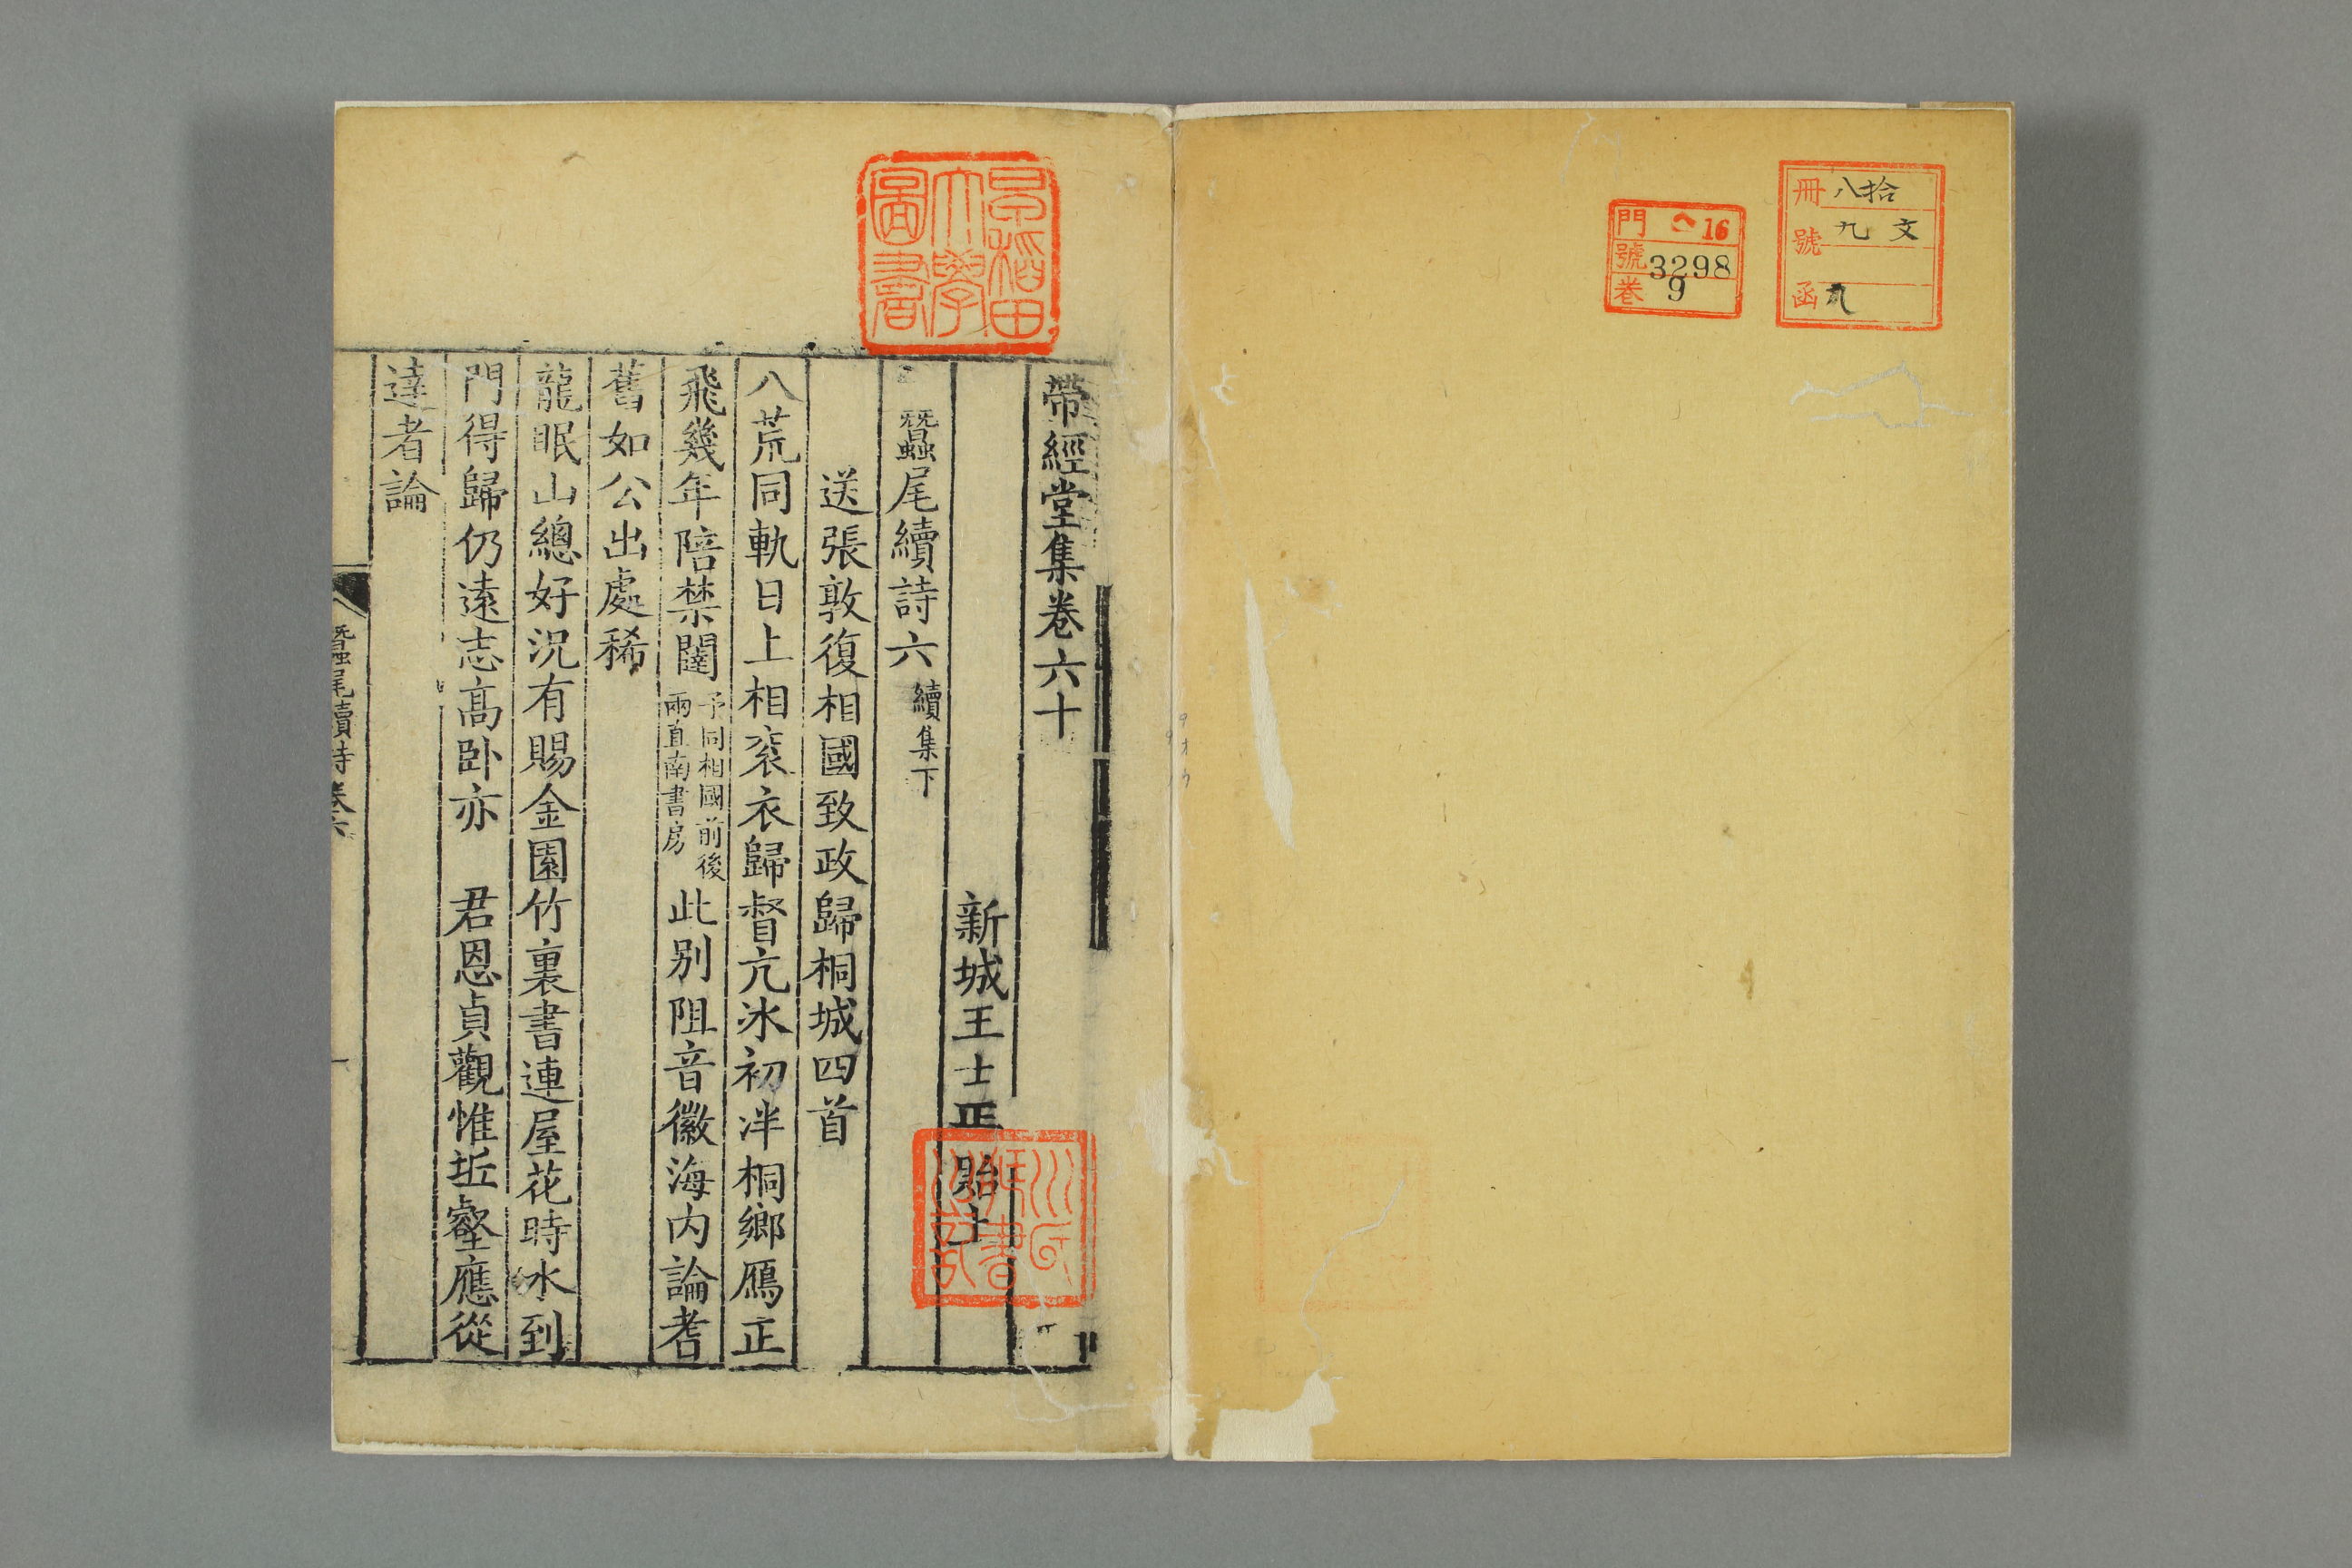 冊 八拾
號 九 文
函 九
門 ヘ 16
號 3298
卷 9
早稻田大學圖書
帶經堂集卷六十
新城王士正貽上
蠶尾續詩六 續集下
送張敦復相國致政歸桐城四首
八荒同軌日上相衮衣歸督亢冰初泮桐鄉鴈正
飛幾年陪禁闥 予同相國前後 兩直南書房 此别阻音徽海内論耆
舊如公出處稀
龍眠山總好況有賜金園竹裏書連屋花時水到
門得歸仍遠志高卧亦 君恩貞觀惟丘壑應從
達者論
蠶尾續詩卷六